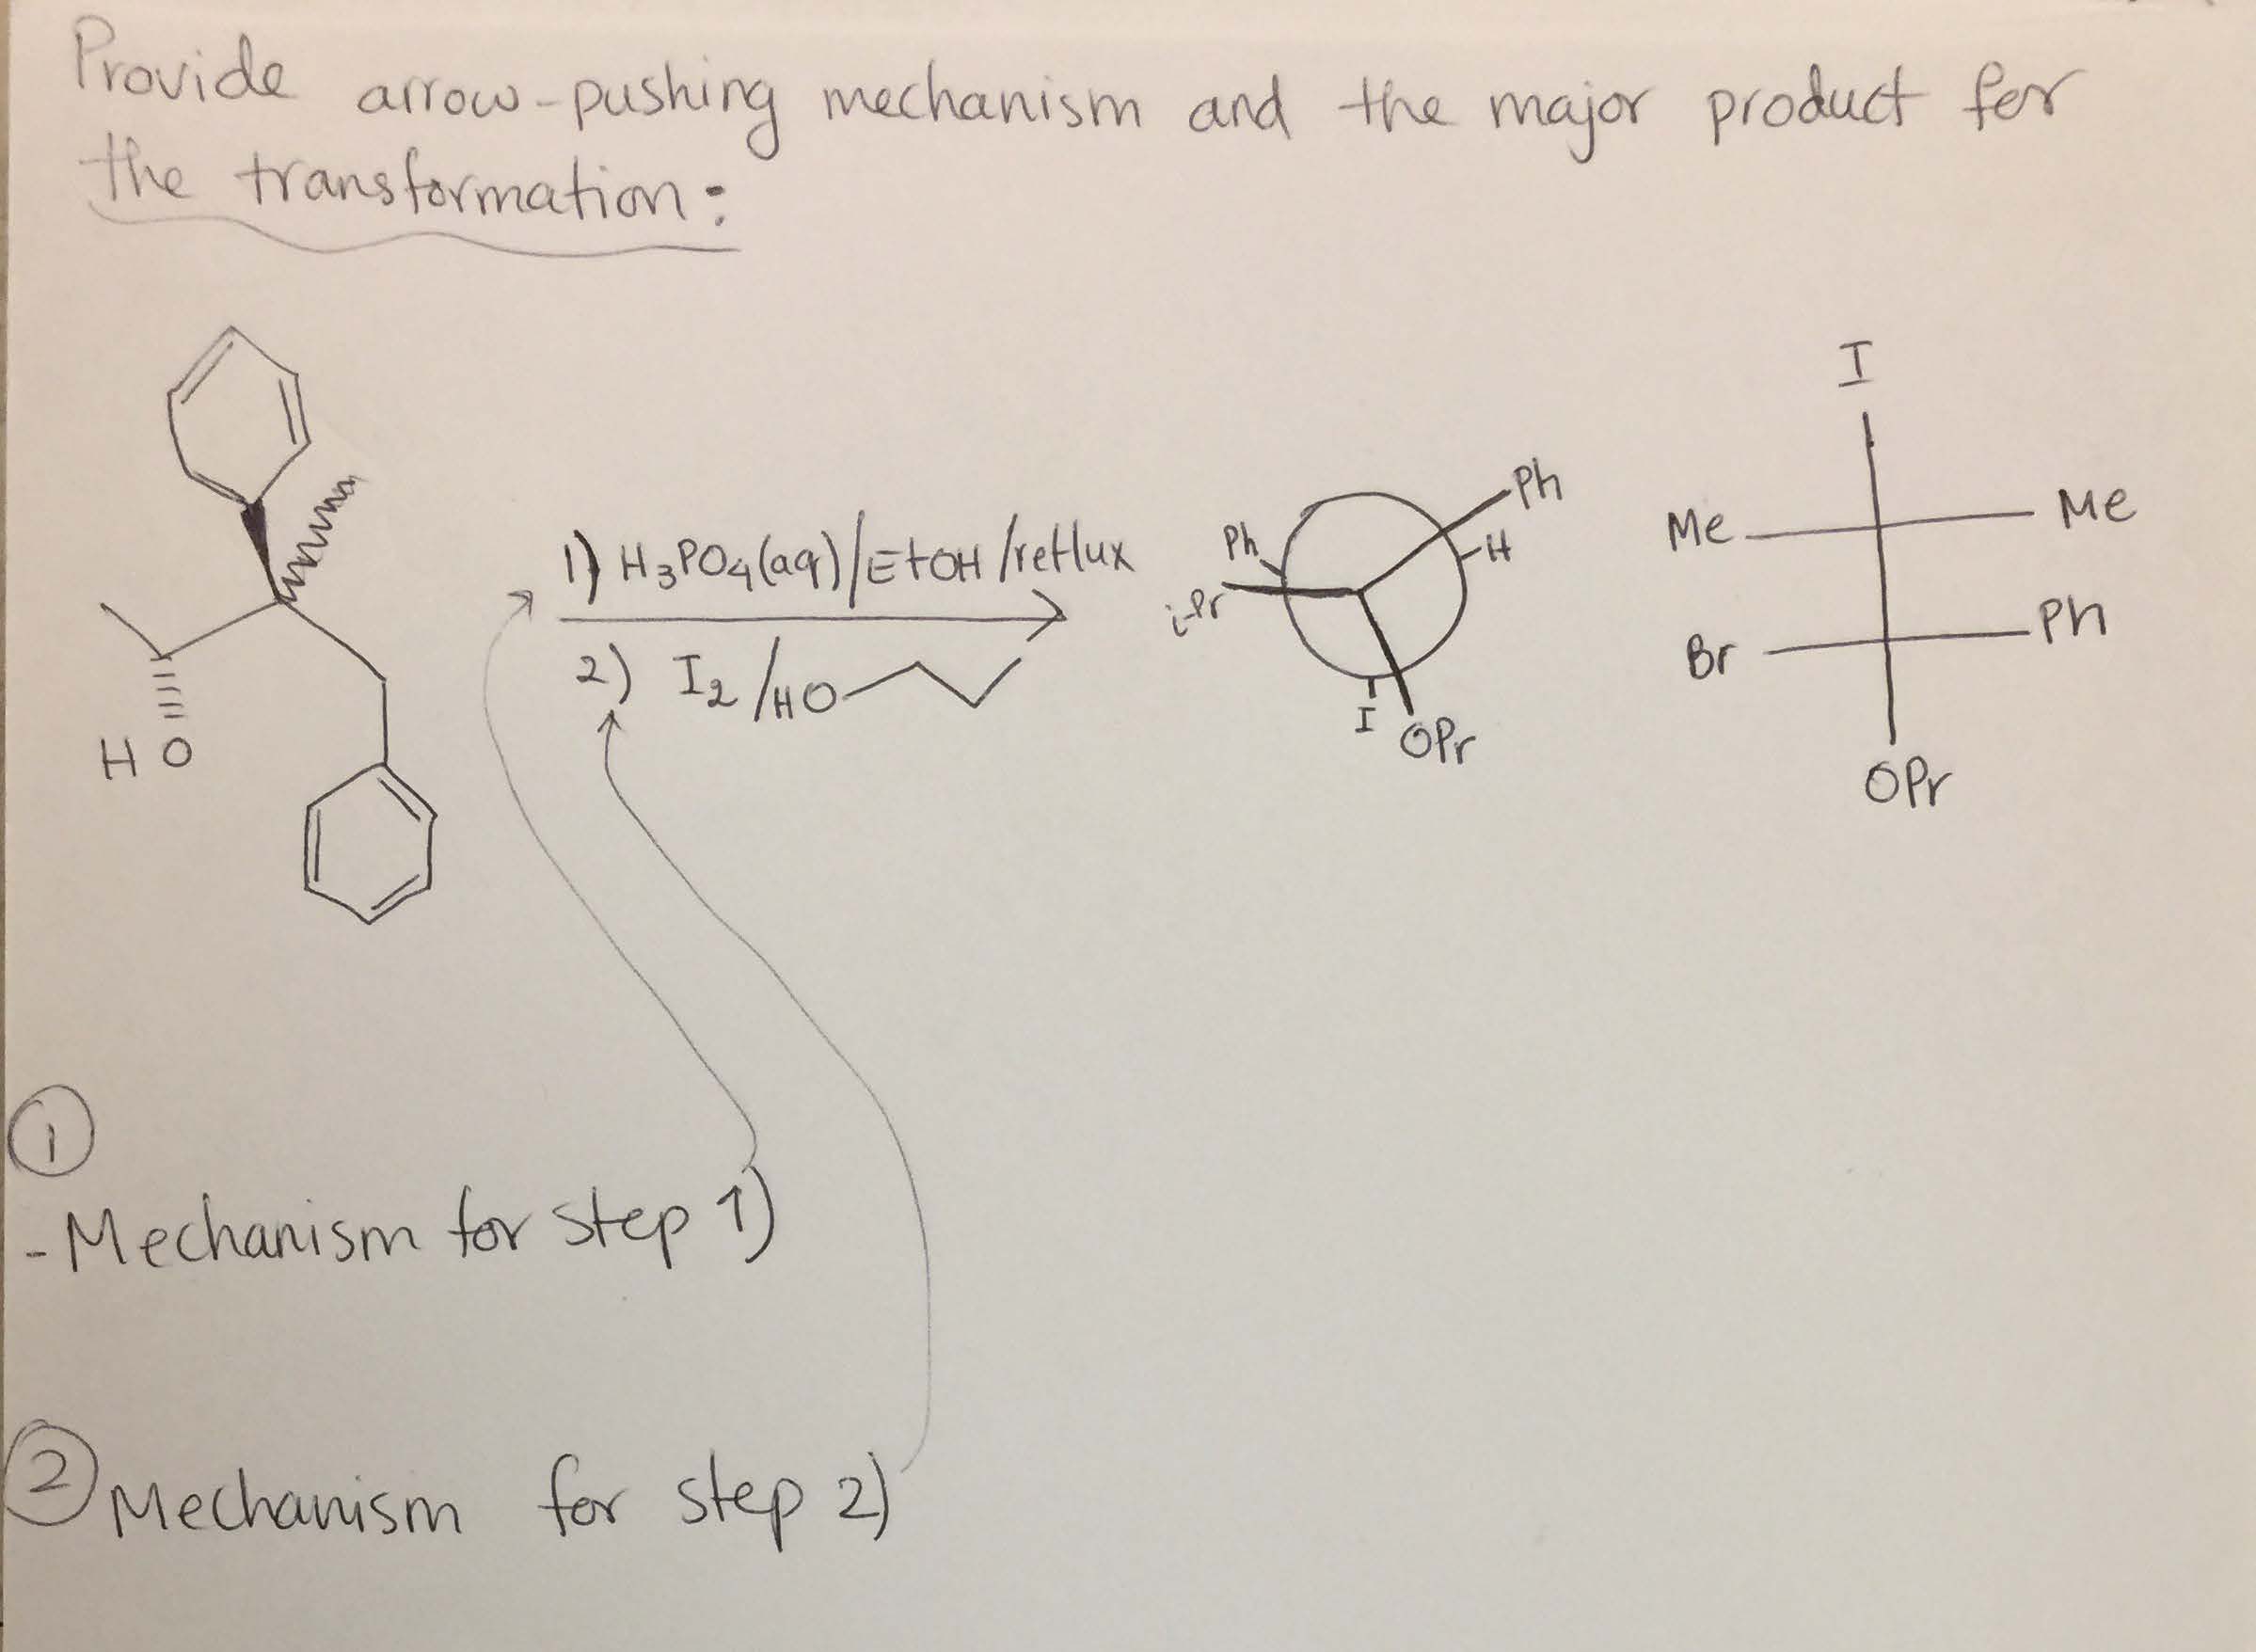 Provide arrow-pushing mechanism and the major product for
the transformation:
HO
1) H3PO4(aq)/EtOH/reflux
2) I2/HO
Ph
Ph
H
iPr
I
OPr
I
Me
Me
Br
Ph
OPr
1
-Mechanism for step 1)
2 Mechanism for step 2)